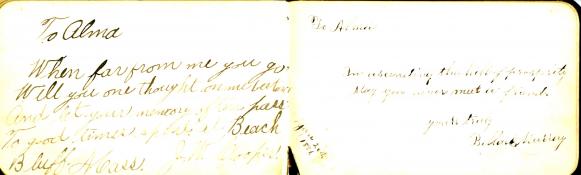 To Alma
When far from me you go
Will you one thought on me
And let your memory pass
To good times at Beach
Bluff Mass.
To Alma
In ascending the hill of prosperity
May you never meet a friend.
yours truly